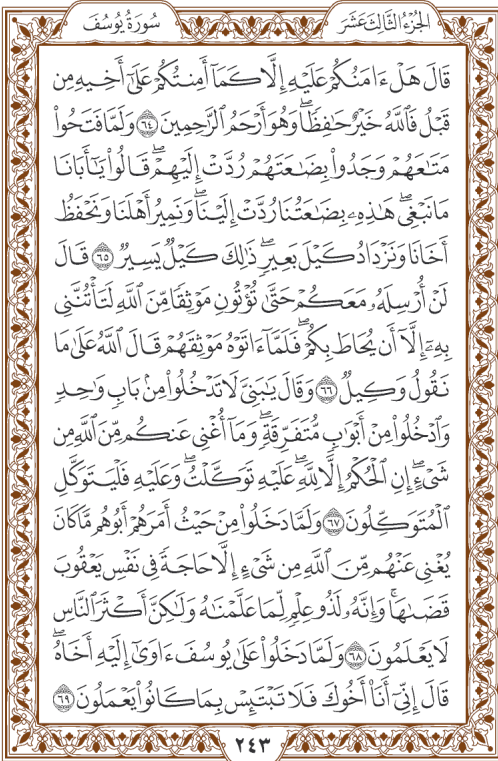 الجُزْءُ الثَّالِثَ عَشَرَ
سُورَةُ يُوسُفَ
قَالَ هَلْ ءَامَنُكُمْ عَلَيْهِ إِلَّا كَمَآ أَمِنتُكُمْ عَلَىٰٓ أَخِيهِ مِن
قَبْلُ فَٱللَّهُ خَيْرٌ حَٰفِظًاۖ وَهُوَ أَرْحَمُ ٱلرَّٰحِمِينَ ٦٤ وَلَمَّا فَتَحُوا۟
مَتَٰعَهُمْ وَجَدُوا۟ بِضَٰعَتَهُمْ رُدَّتْ إِلَيْهِمْۖ قَالُوا۟ يَٰٓأَبَانَا
مَا نَبْغِىۖ هَٰذِهِۦ بِضَٰعَتُنَا رُدَّتْ إِلَيْنَاۖ وَنَمِيرُ أَهْلَنَا وَنَحْفَظُ
أَخَانَا وَنَزْدَادُ كَيْلَ بَعِيرٍۖ ذَٰلِكَ كَيْلٌ يَسِيرٌ ٦٥ قَالَ
لَنْ أُرْسِلَهُۥ مَعَكُمْ حَتَّىٰ تُؤْتُونِ مَوْثِقًا مِّنَ ٱللَّهِ لَتَأْتُنَّنِى
بِهِۦٓ إِلَّآ أَن يُحَاطَ بِكُمْۖ فَلَمَّآ ءَاتَوْهُ مَوْثِقَهُمْ قَالَ ٱللَّهُ عَلَىٰ مَا
نَقُولُ وَكِيلٌ ٦٦ وَقَالَ يَٰبَنِىَّ لَا تَدْخُلُوا۟ مِنۢ بَابٍ وَٰحِدٍ
وَٱدْخُلُوا۟ مِنْ أَبْوَٰبٍ مُّتَفَرِّقَةٍۖ وَمَآ أُغْنِى عَنكُم مِّنَ ٱللَّهِ مِن
شَىْءٍۖ إِنِ ٱلْحُكْمُ إِلَّا لِلَّهِۖ عَلَيْهِ تَوَكَّلْتُۖ وَعَلَيْهِ فَلْيَتَوَكَّلِ
ٱلْمُتَوَكِّلُونَ ٦٧ وَلَمَّا دَخَلُوا۟ مِنْ حَيْثُ أَمَرَهُمْ أَبُوهُم مَّا كَانَ
يُغْنِى عَنْهُم مِّنَ ٱللَّهِ مِن شَىْءٍ إِلَّا حَاجَةً فِى نَفْسِ يَعْقُوبَ
قَضَىٰهَاۚ وَإِنَّهُۥ لَذُو عِلْمٍ لِّمَا عَلَّمْنَٰهُ وَلَٰكِنَّ أَكْثَرَ ٱلنَّاسِ
لَا يَعْلَمُونَ ٦٨ وَلَمَّا دَخَلُوا۟ عَلَىٰ يُوسُفَ ءَاوَىٰٓ إِلَيْهِ أَخَاهُۖ
قَالَ إِنِّىٓ أَنَا۠ أَخُوكَ فَلَا تَبْتَئِسْ بِمَا كَانُوا۟ يَعْمَلُونَ ٦٩
٢٤٣